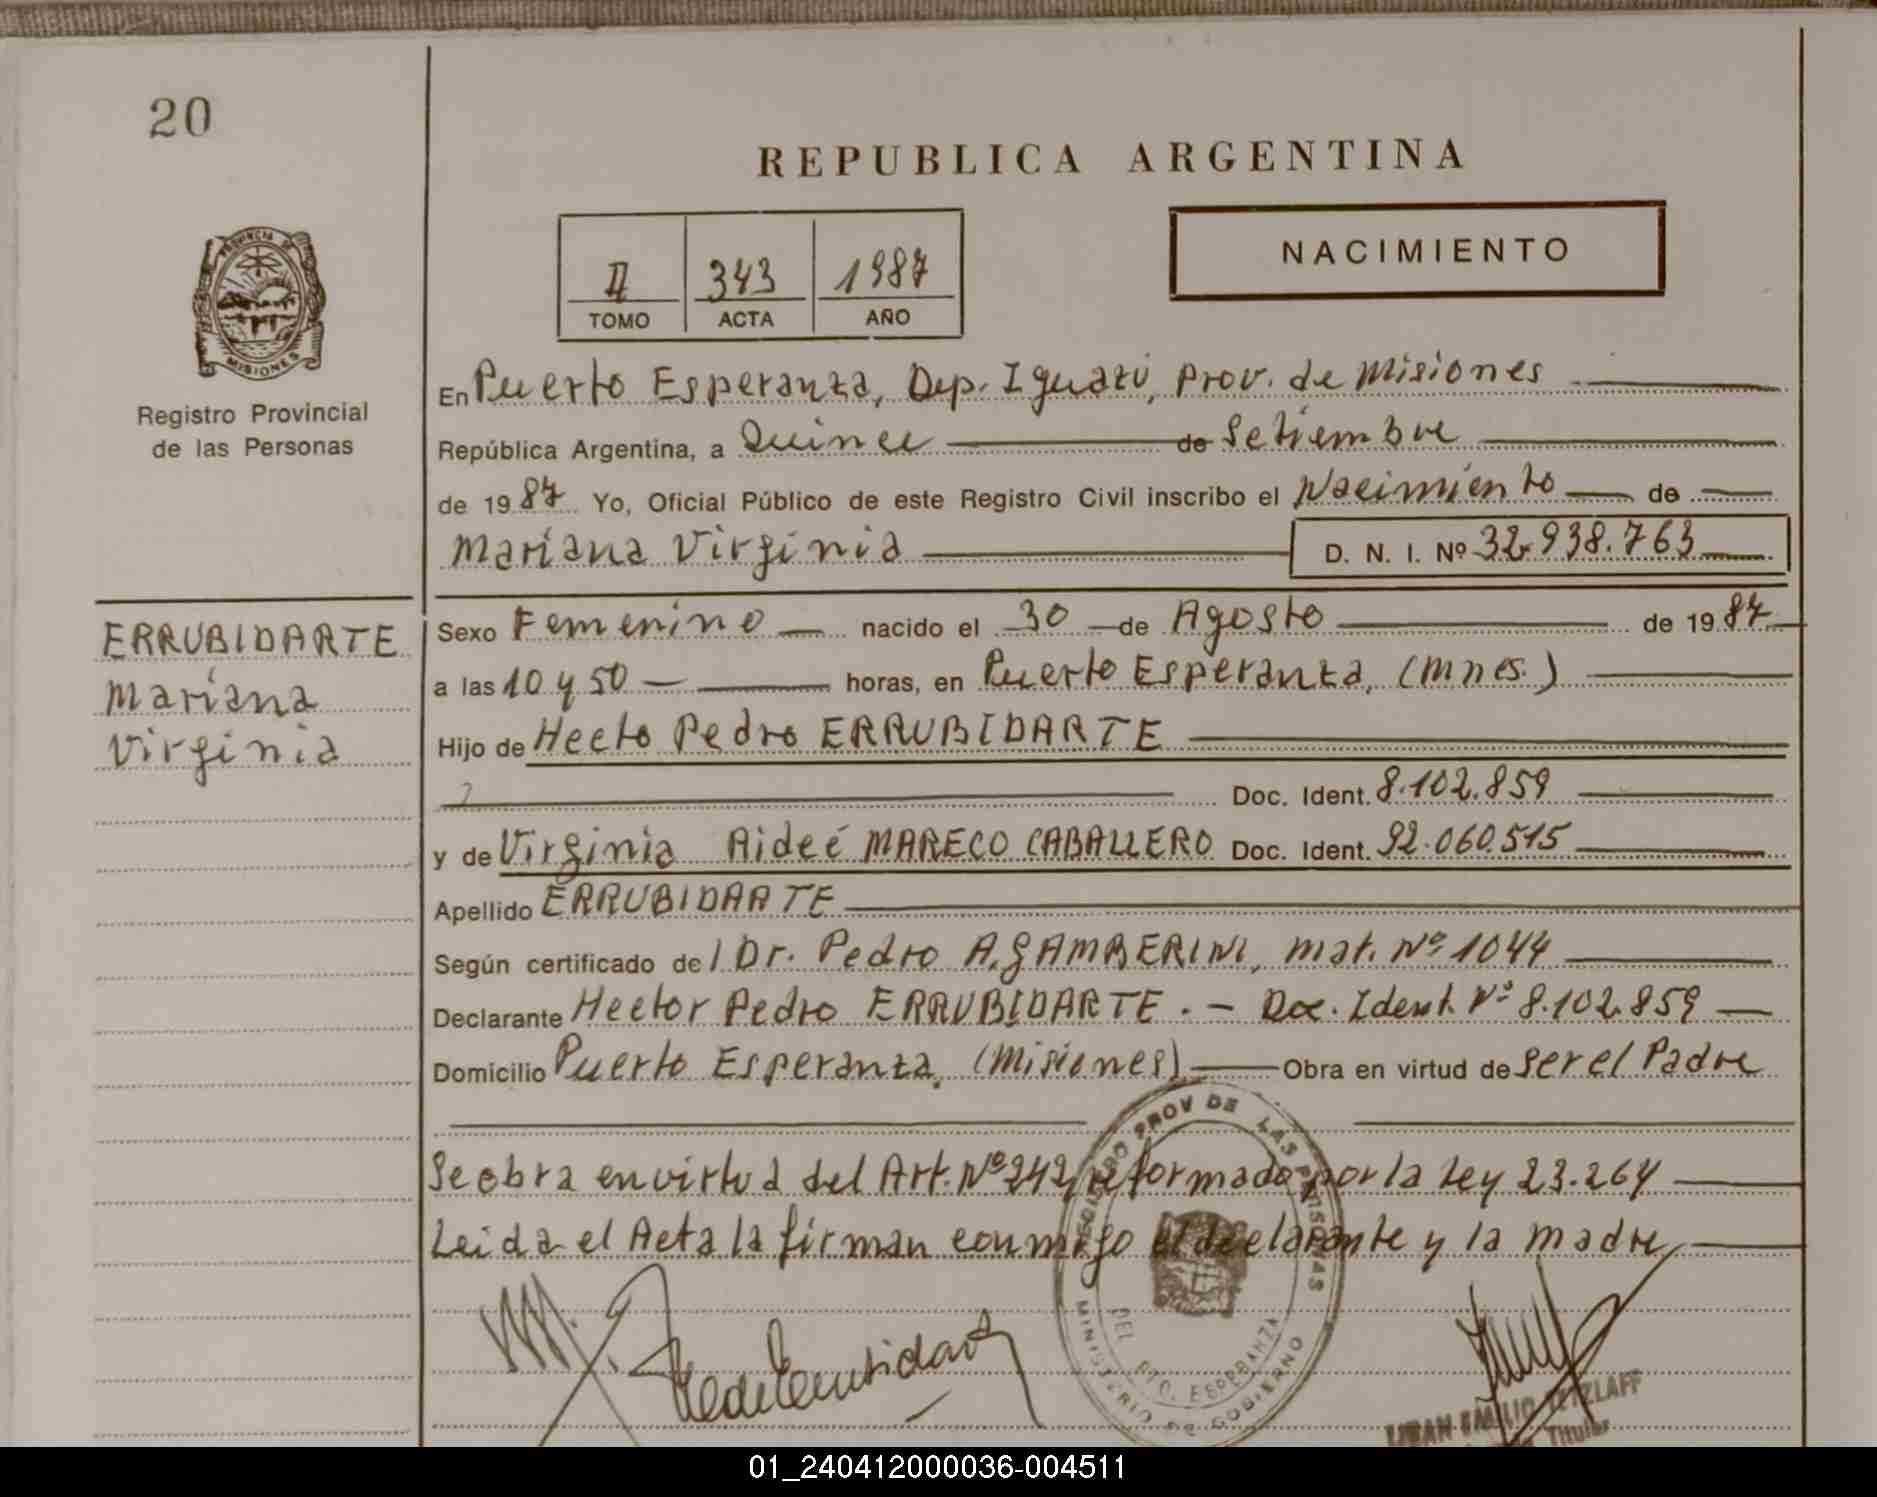 20
REPUBLICA ARGENTINA
II 343 1987
TOMO ACTA AÑO
NACIMIENTO
PROVINCIA DE
MISIONES
Registro Provincial
de las Personas
En Puerto Esperanza, Dep. Iguazú, Prov. de Misiones
República Argentina, a Quince de Setiembre
de 1987 Yo, Oficial Público de este Registro Civil inscribo el Nacimiento de
Mariana Virginia D. N. I. Nº 32.938.763
ERRUBIDARTE
Mariana
Virginia
Sexo Femenino nacido el 30 de Agosto de 1987
a las 10 y 50 horas, en Puerto Esperanza, (Mnes.)
Hijo de Hecto Pedro ERRUBIDARTE
Doc. Ident. 8.102.859
y de Virginia Aideé MARECO CABALLERO Doc. Ident. 92.060.515
Apellido ERRUBIDARTE
Según certificado del Dr. Pedro A. GAMBERINI, mat. Nº 1044
Declarante Hector Pedro ERRUBIDARTE . - Doc. Ident. Nº 8.102.859
Domicilio Puerto Esperanza, (Misiones) Obra en virtud de ser el Padre
Se obra en virtud del Art. Nº 242, reformado por la Ley 23.264
Leida el Acta la firman conmigo el declarante y la madre
REGISTRO PROV DE LAS PERSONAS
DEL PTO. ESPERANZA
MINISTERIO DE GOBIERNO
EMILIO TETZLAFF
Titular
01_240412000036-004511